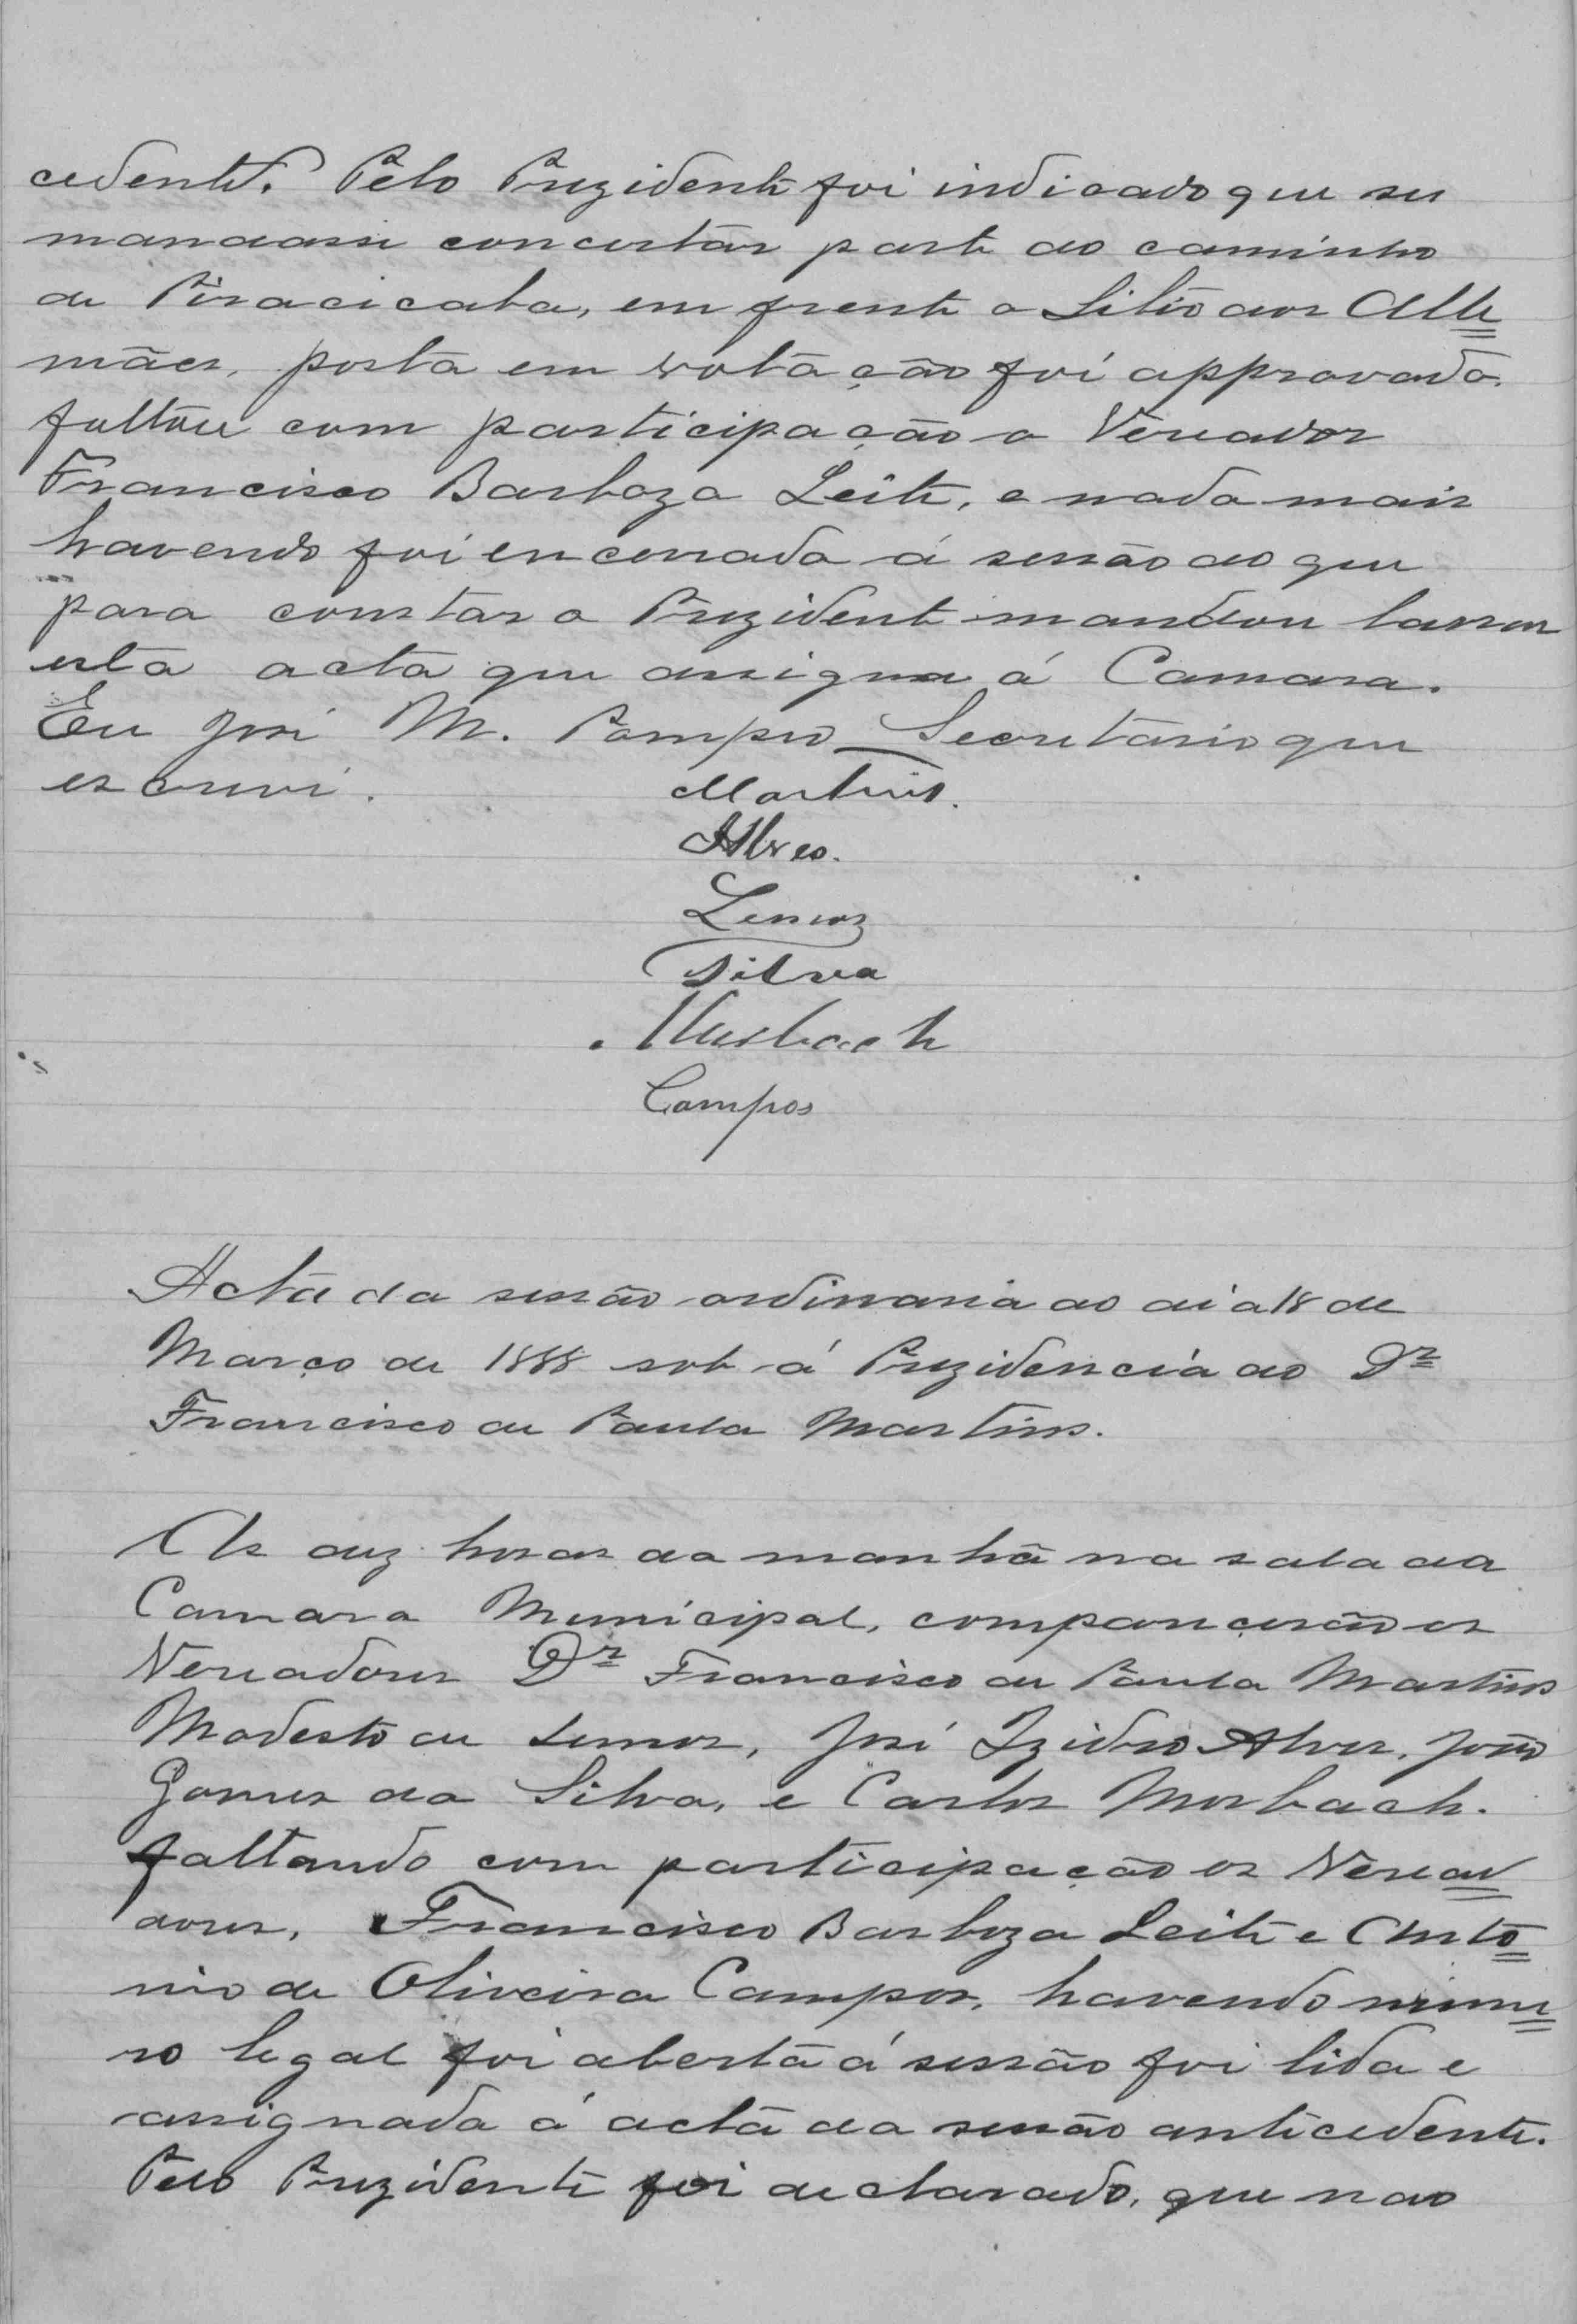 cedente. Pelo Prezidente foi indicado que se
mandasse concertar parte do caminho
de Piracicaba, em frente o Sitio dos Alle
mães, posta em votação foi approvada.
faltou com participação o Vereador
Francisco Barboza Leite, e nada mais
havendo foi encerrada á sessão do que
para constar o Prezidente mandou lavrar
esta acta que assigna á Camara.
Eu José M. Pompeo Secretario que
escrevi.
Martins.
Alves.
Lemos
Silva
Musbach
Campos
Acta da sessão ordinaria do dia 18 de
Março de 1888 sob á Prezidencia do Dr
Francisco de Paula Martins.
As dez horas da manhã na sala da
Camara Municipal, comparecerão os
Vereadores Dr Francisco de Paula Martins
Modesto de Lemos, José Izidro Alves, João
Gomes da Silva, e Carlos Musbach.
faltando com participação os Veread
dores, Francisco Barboza Leite e Anto
nio de Oliveira Campos, havendo nume
ro legal foi aberta á sessão foi lida e
assignada á acta da sessão antecedente.
Pelo Prezidente foi declarado, que nao